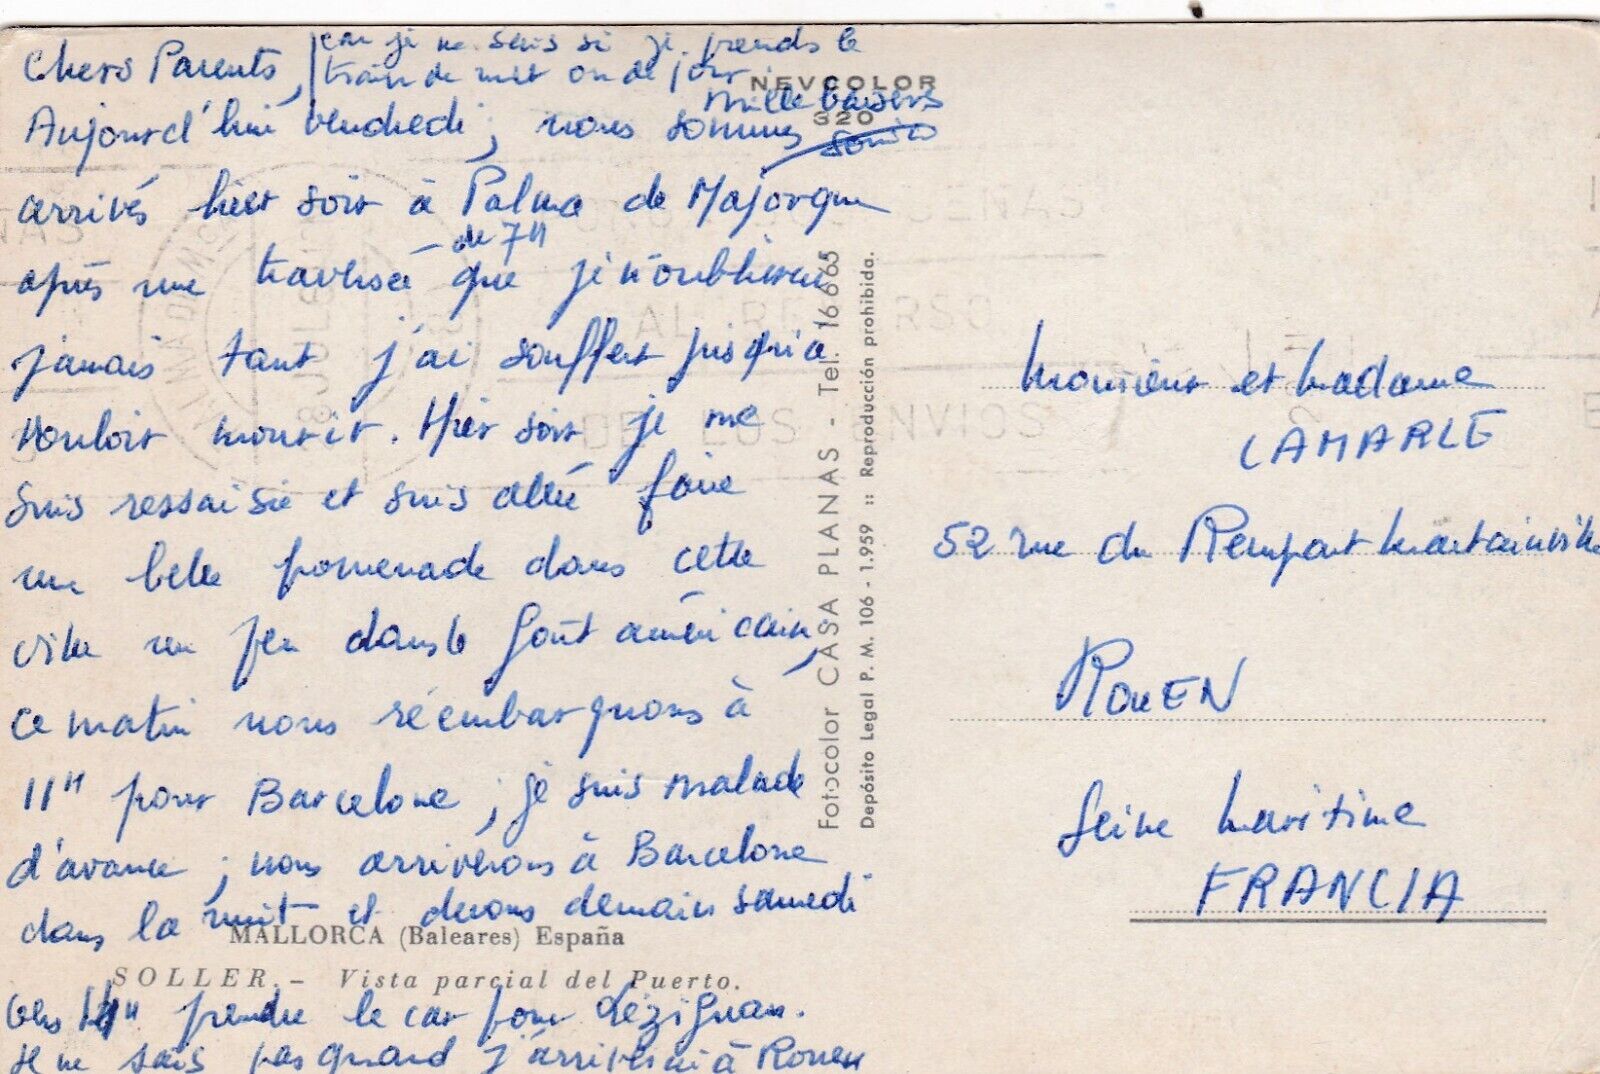 Chers Parents,
Aujourd'hui vendredi, nous sommes
arrivés hier soir à Palma de Majorque
après une traversée de 7H que je n'oublierai
jamais tant j'ai souffert jusqu'à
vouloir mourir. Hier soir je me
suis ressaisie et suis allée faire
une belle promenade dans cette
ville un peu dans le goût américain,
ce matin nous réembarquons à
11H pour Barcelone ; je suis malade
d'avance ; nous arriverons à Barcelone
dans la nuit et devons demain samedi
vers 14H prendre le car pour Lézignan.
Je ne sais pas quand j'arriverai à Rouen
car je ne sais si je prends le
train de nuit ou de jour.
Mille baisers
NEVCOLOR
320
Fotocolor CASA PLANAS - Tel. 16665
Depósito Legal P. M. 106 - 1.959 :: Reproducción prohibida.
MALLORCA (Baleares) España
SOLLER.- Vista parcial del Puerto.
AL REVERSO
DE LOS ENVIOS
Monsieur et Madame
LAMARLE
52 rue du Rempart Martainville
ROUEN
Seine Maritime
FRANCIA